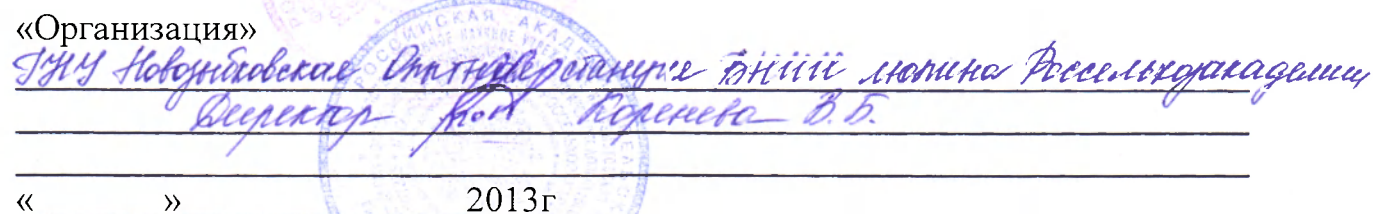 «Организация»
ГНУ Новозыбковская Опытная станция ВНИИ люпина Россельхозакадемии
Директор Коренева В.Б.
« » 2013г